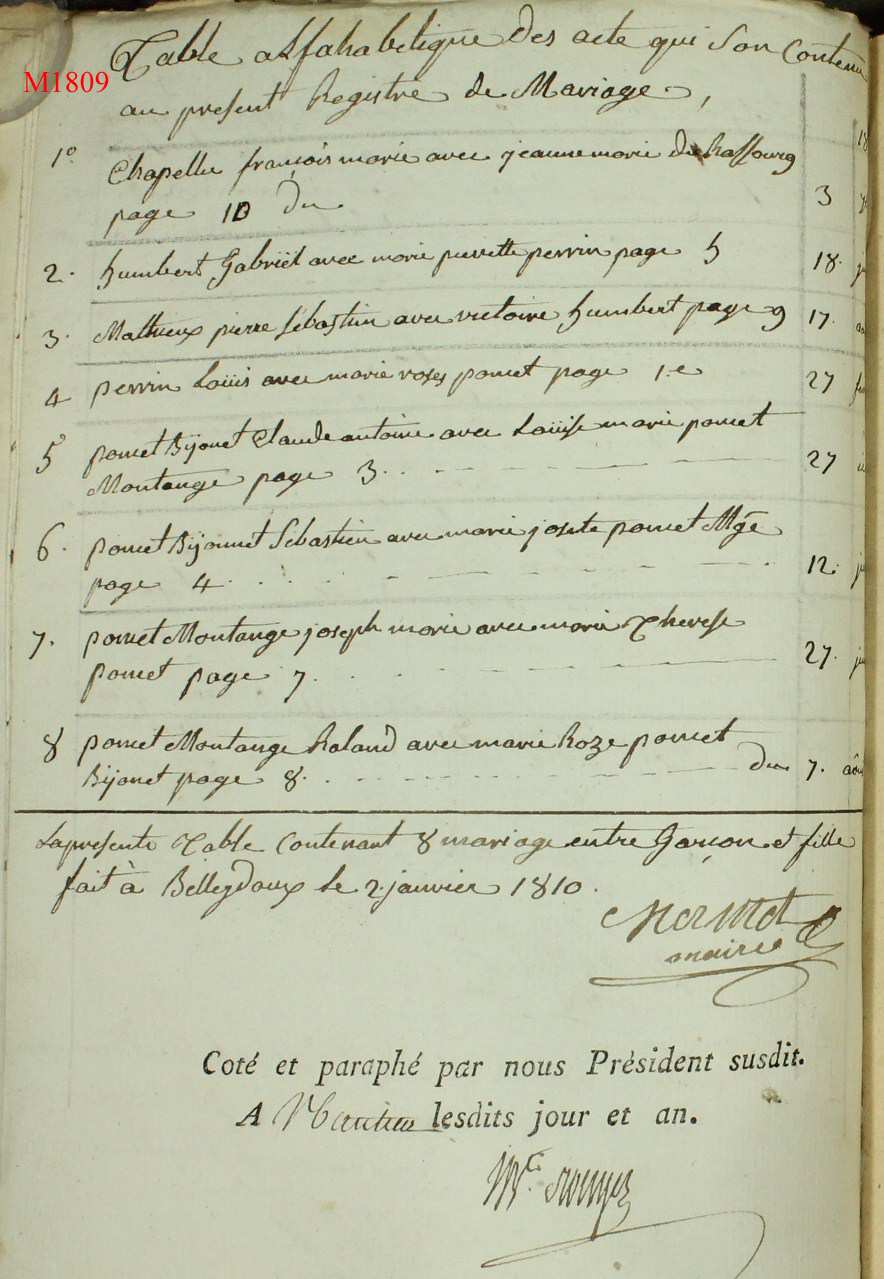 M1809
Table alfahabetique des acte qui son contenu
au present Registre de Mariage,
1º Chapellu françois marie avec jeanne marie
page 10 du 3
2. humbert Gabriel avec marie pierrette perrin page 5 18.
3. Mathieux pierre sebastien avec victoire humbert page 9 17.
4 perrin Loüis avec marie roses poncet page 1.e 27
5 poncet Bijonet Claude antoine avec Loüise marie poncet
Montange page 3. 27
6. poncet Bijonnet Sebastien avec marie josete poncet Mge
page 4. 12.
7. poncet Montange joseph marie avec marie Therese
poncet page 7. 27.
8 poncet Montange Roland avec marie Roze poncet
Bijonet page 8. du 7. aou
La presente Table Contenant 8 mariage entre Garçon et fille
fait à Belleydoux le 2 janvier 1810.
mermet
maire
Coté et paraphé par nous Président susdit.
A Nantua lesdits jour et an.